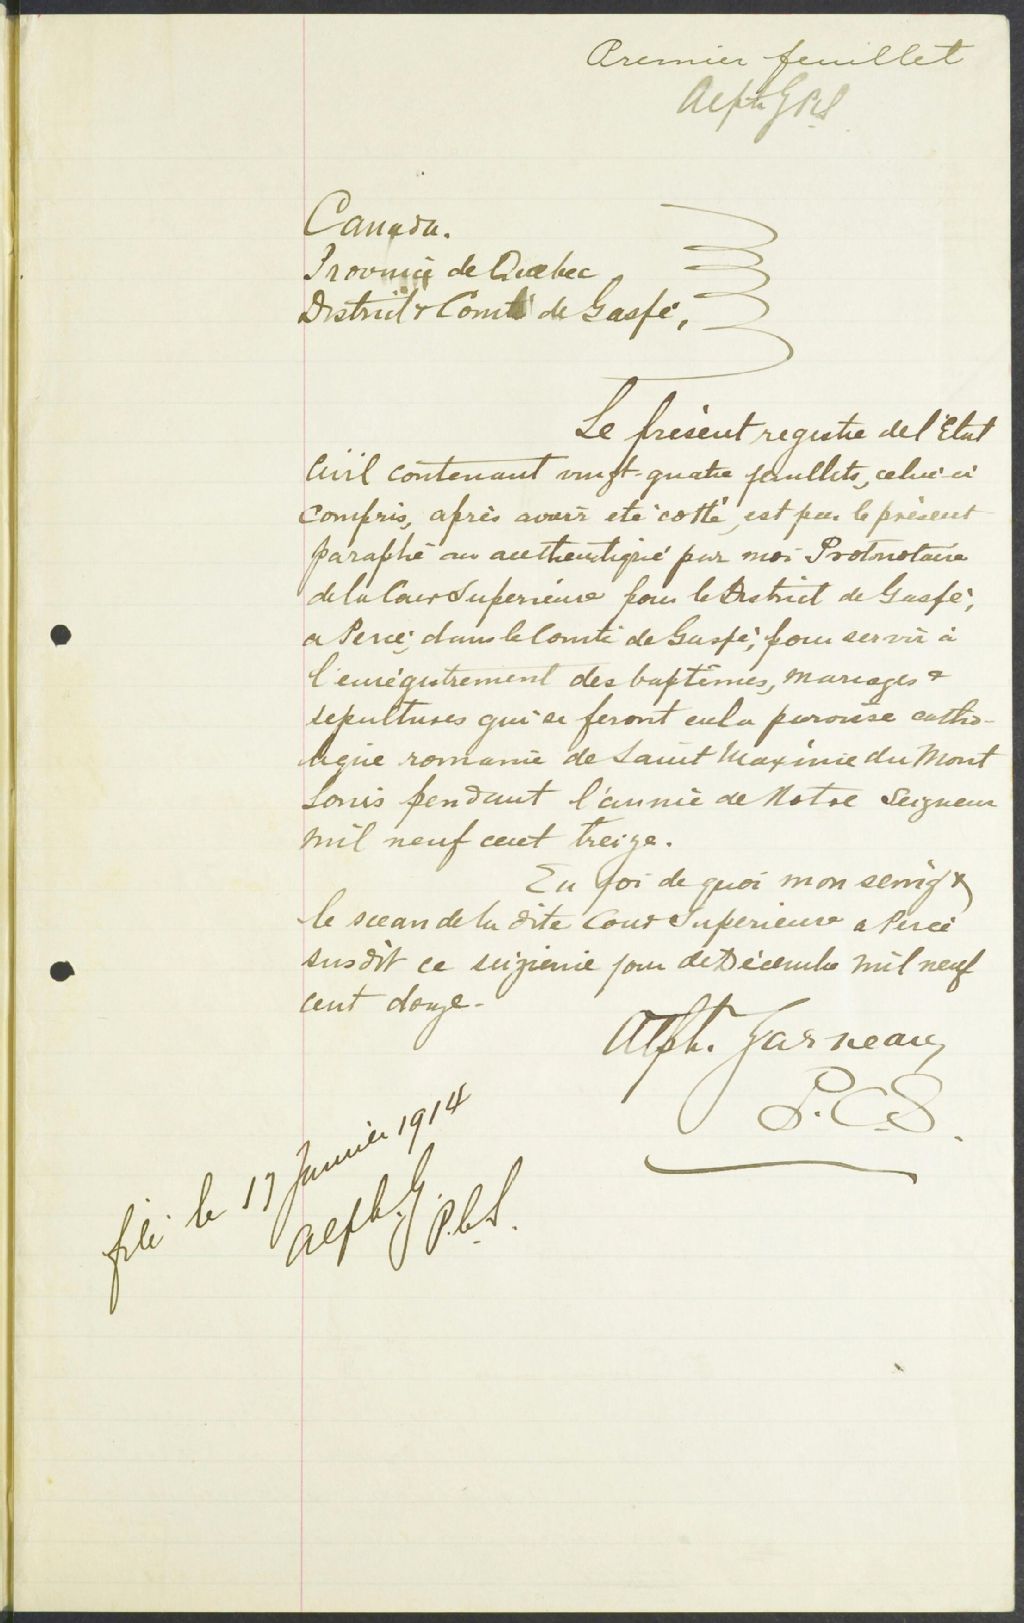 Premier feuillet
Alph G PCS
Canada.
Province de Quebec
District & Comté de Gaspé,
Le présent registre de l'Etat
Civil contenant vingt-quatre feuillets, celui-ci
compris, après avoir été cotté, est par le présent
paraphé au authentiqué par moi Protonotaire
de la Cour Superieure pour le District de Gaspé,
a Percé, dans le Comté de Gaspé, pour servir à
l'enrégistrement des baptêmes, mariages &
sepultures qui se feront en la paroisse catho-
lique romaine de Saint Maxime du Mont
Louis pendant l'année de Notre Seigneur
Mil neuf cent treize.
En foi de quoi mon seing &
le sceau de la dite Cour Superieure a Percé
susdit ce seizieme jour de Décembre mil neuf
cent douze-
Alph. Garneau
P.C.S.
filé le 17 Janvier 1914
Alph. G.
P.C.S.